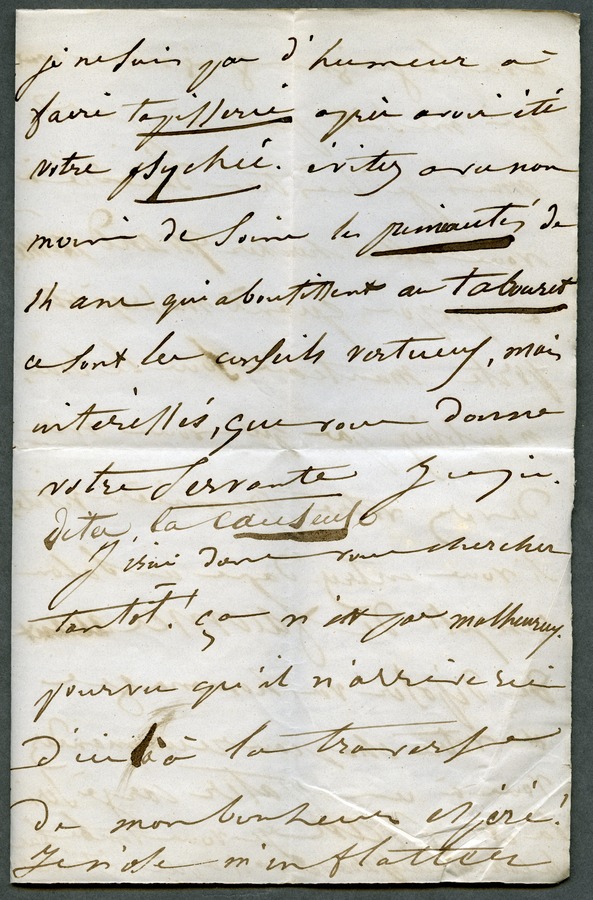 je ne suis pas d'humeur à
faire tapisserie après avoir été
votre psyché. évitez avec non
moins de soins les primautés de
14 ans qui aboutissent au tabouret
ce sont les conseils vertueux, mais
intéressés, que vous donne
votre Servante
dite la causeuse
J'irai donc vous chercher
tantôt! ça n'est pas malheureux.
pourvu qu'il n'arrive rien
d'ici là à la traverse
de mon bonheur espéré!
Je n'ose m'en flatter